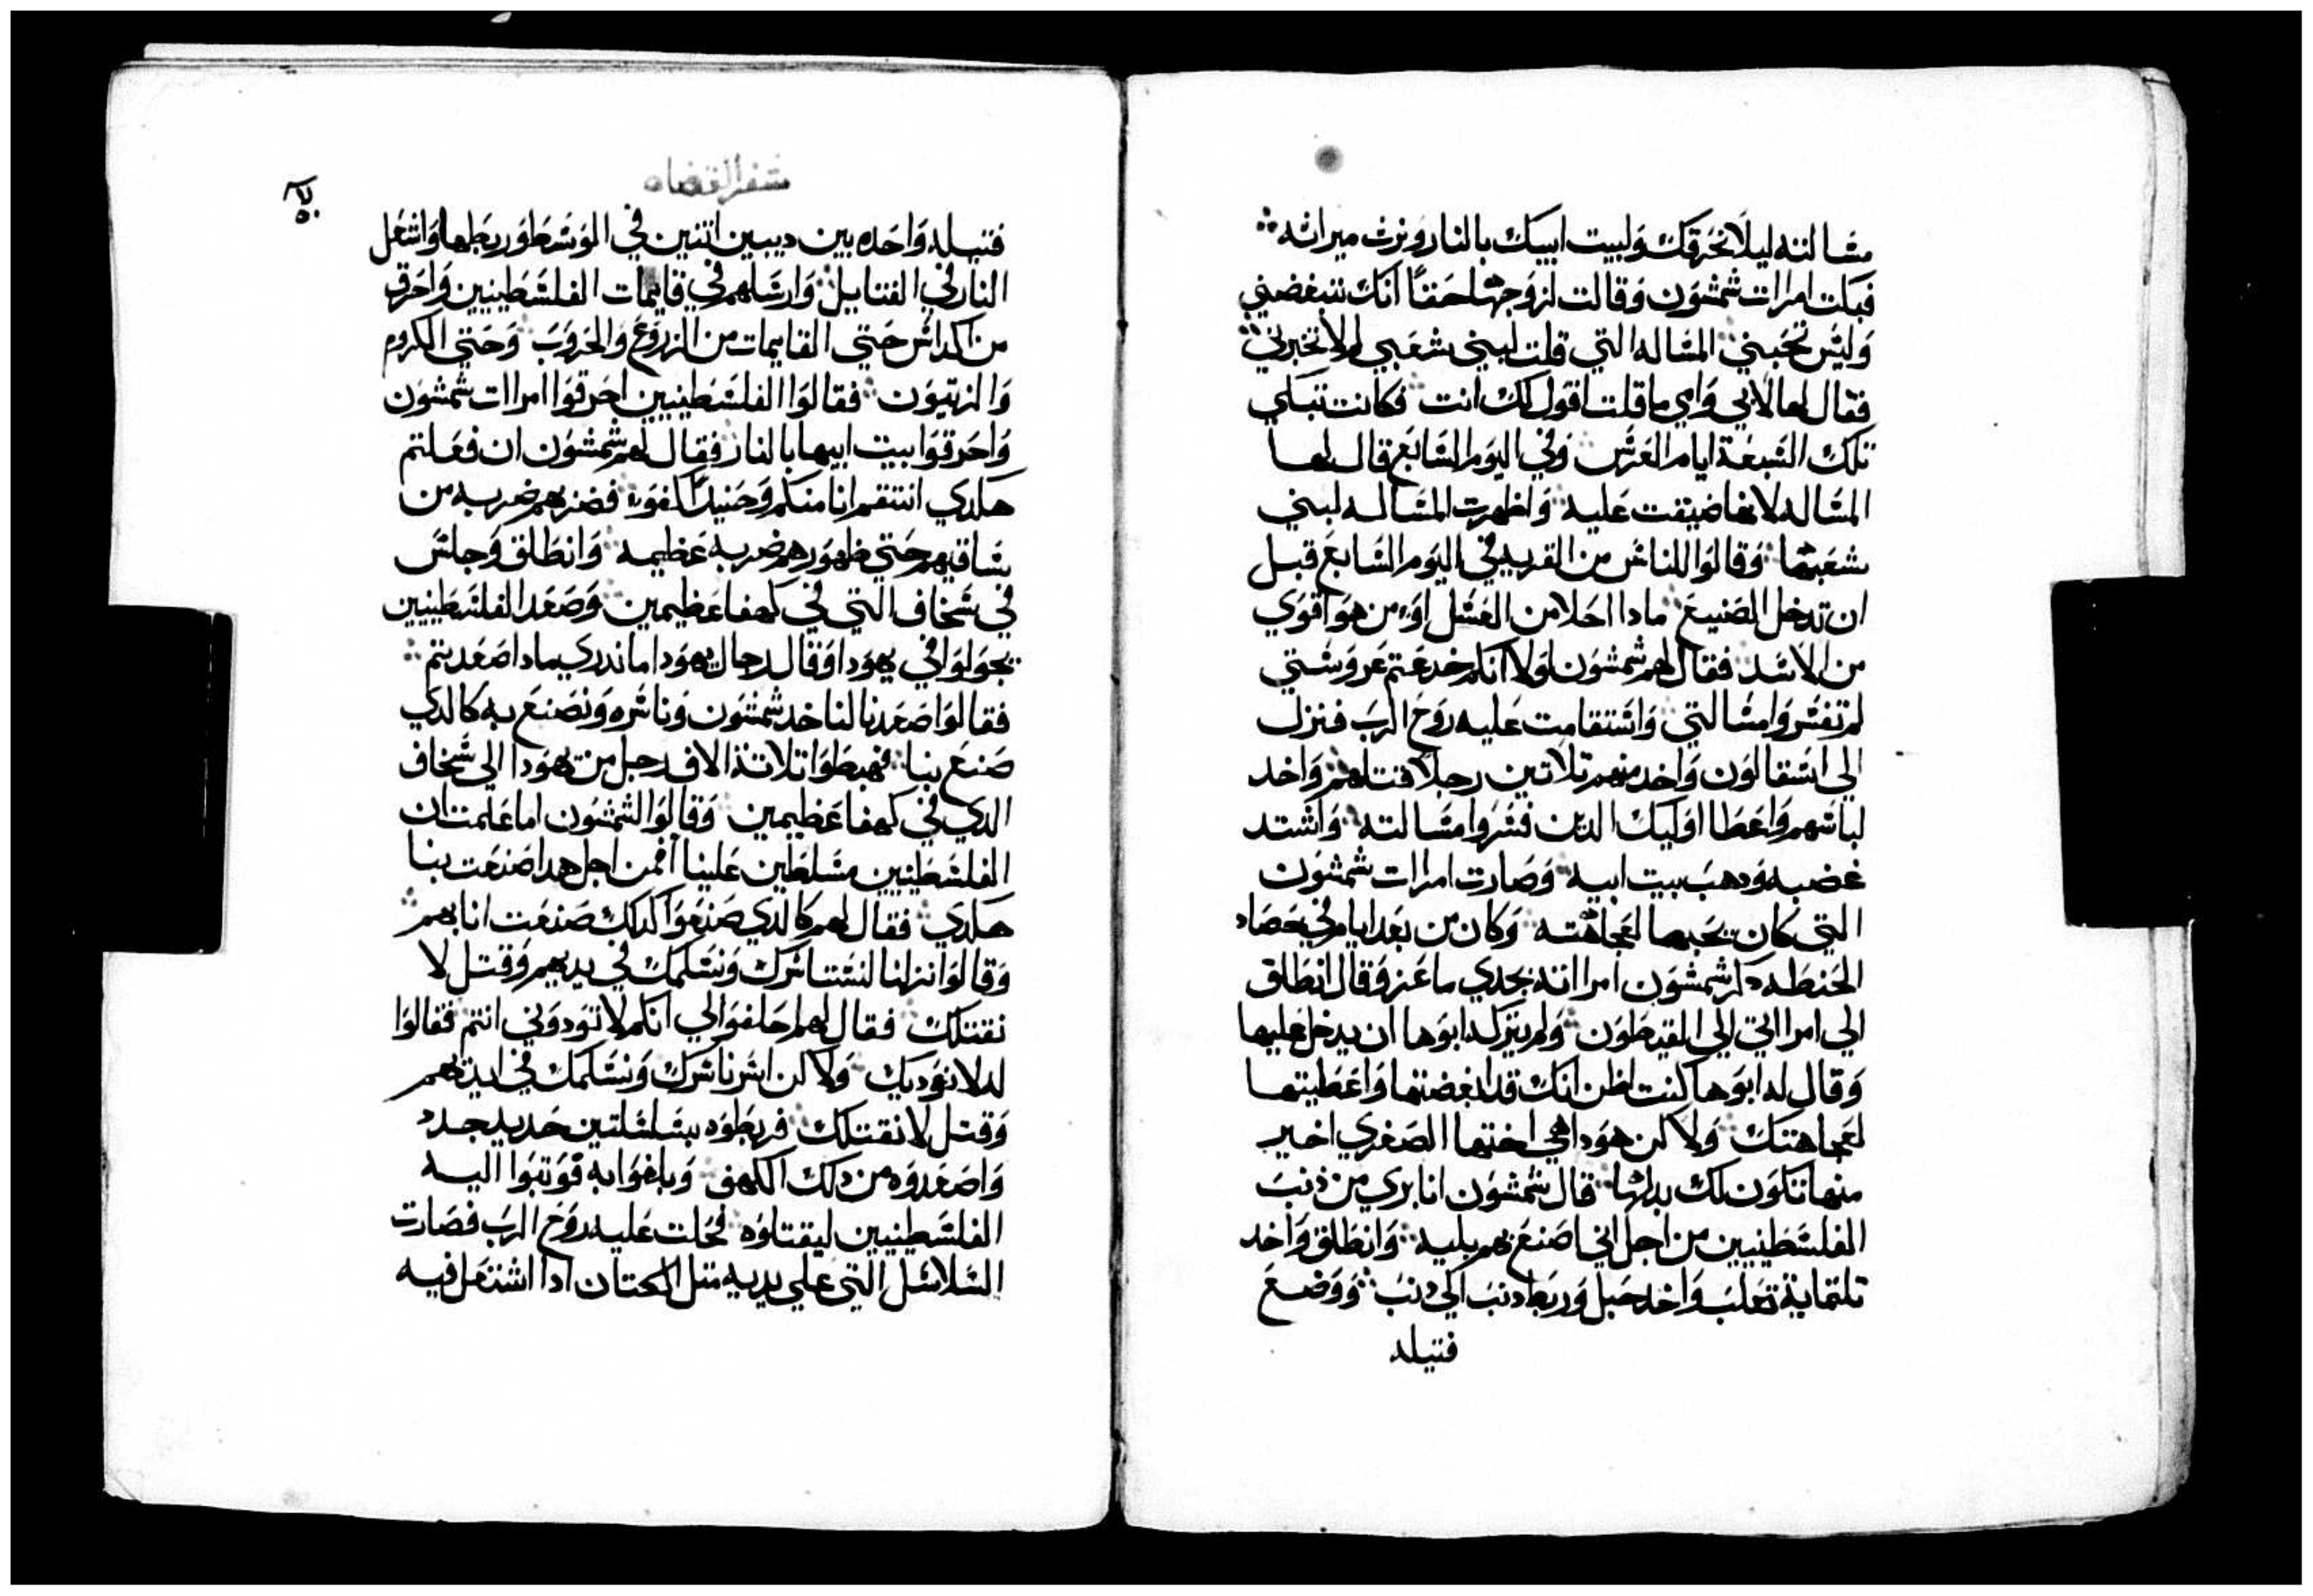 مسالته ليلا نحرقك ولبيت ابيك بالنار ونرث ميراثه
فبكت امرات شمشون وقالت لزوجها حقا انك تبغضني
وليس تحبني المساله التي قلت لبني شعبي لم لا تخبرني
فقال لها لابي وامي ما قلت اقول لك انت فكانت تبكي
تلك السبعة ايام العرس وفي اليوم السابع قال لها
المساله لانها ضيقت عليه واظهرت المساله لبني
شعبها وقالوا للناس من القريه في اليوم السابع قبل
ان تدخل الصنيع مادا احلا من العسل او من هو اقوي
من الاسد فقال لهم شمشون لولا انكم خدعتم عروستي
لم تفسروا مسالتي واستقامت عليه روح الرب فنزل
الي اسقالون واخد منهم تلاتين رجلا فقتلهم واخد
لباسهم واعطا اوليك الدين فسروا مسالته واشتد
غضبه ودهب بيت ابيه وصارت امرات شمشون
التي كان يحبها لعجاهته وكان من بعد ايام في حصاد
الحنطه دكر شمشون امراته بجدي ماعز وقال انطلق
الي امراتي الي القيطون ولم يتركه ابوها ان يدخل عليها
وقال له ابوها كنت اظن انك قد ابغضتها واعطيتها
لعجاهتك ولاكن هودا هي اختها الصغري اخير
منها تكون لك بدلها قال شمشون انا بري من ذنب
الفلسطينيين من اجل اني اصنع بهم بليه وانطلق واخد
تلتماية تعلب واخد حبل وربط دنب الي دنب ووضع
فتيله
سفر القضاه
فتيله واحده بين ديبين اتنين في الوسط وربطها واشعل
النار في الفتايل وارسلهم في قايمات الفلسطينيين واحرق
من اكداس حتي القايمات من الزروع والخروب وحتي الكروم
والزيتون فقالوا الفلسطينيين احرقوا امراات شمشون
واحرقوا بيت ابيها بالنار فقال لهم شمشون ان فعلتم
هكدي انتقم انا منكم وحنيدا فضربهم ضربه من
ساقيهم حتي ظهورهم ضربه عظيمه وانطلق وجلس
في سخاف التي في كهفا عظيمين وصعد الفلسطينيين
يجولوا في يهودا وقال رجال يهودا ما ندري مادا صعدتم
فقالوا صعدنا لناخد شمشون وناسره ونصنع به كالدي
صنع بنا فهبطوا تلاتة الاف رجل من يهودا الي سخاف
الدي في كهفا عظيمين وقالوا لشمشون اما علمت ان
الفلسطينيين مسلطين علينا افمن اجل هدا صنعت بنا
هكدي فقال لهم كالدي صنعوا كدلك صنعت انا بهم
وقالوا نزلنا لنستاسرك ونسلمك في يديهم وقتل لا
نقتلك فقال لهم احلفوا لي انكم لا تودوني انتم فقالوا
له لا نوديك ولاكن اسرنا سرك ونسلمك في ايديهم
وقتل لا نقتلك فربطوه بسلسلتين حديد جدد
واصعدوه من دلك الكهف وبلغوا به فوتبوا اليه
الفلسطينيين ليقتلوه فحلت عليه روح الرب فصارت
السلاسل التي علي يديه متل الكتان ادا اشتعل فيه